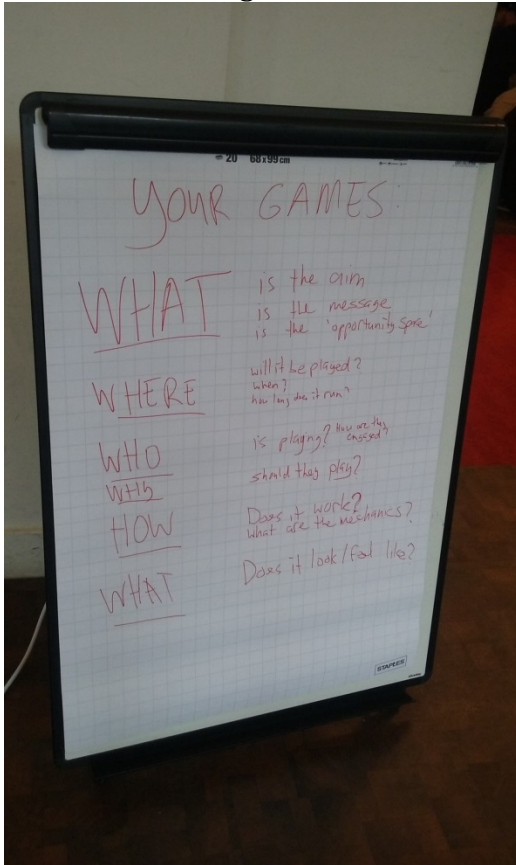 20 68x99cm
YOUR GAMES:
WHAT is the aim
is the message
is the 'opportunity space'
WHERE will it be played?
when?
how long does it run?
WHO is playing? How are they engaged?
WHY should they play?
HOW Does it work?
what are the mechanics?
WHAT Does it look/feel like?
STAPLES